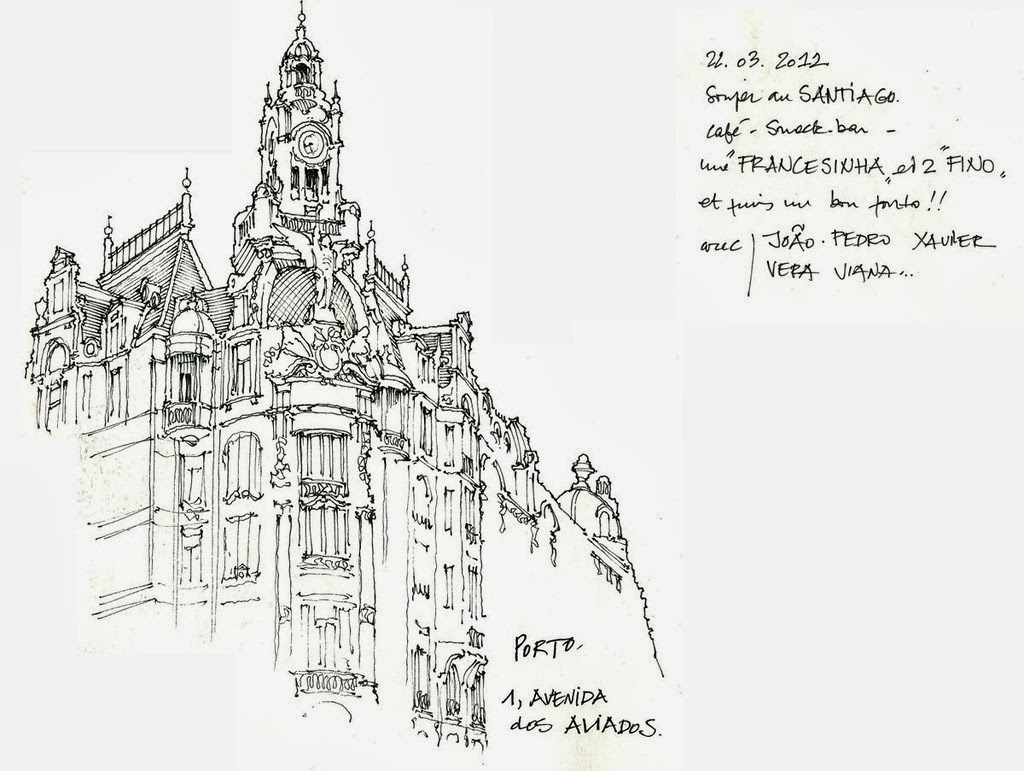 22.03.2012
Souper au SANTIAGO.
café - Snack-bar -
une "FRANCESINHA" et 2 "FINO"
et puis un bon porto!!
avec JOÃO-PEDRO XAVIER
VERA VIANA...
PORTO.
1, AVENIDA
dos ALIADOS.